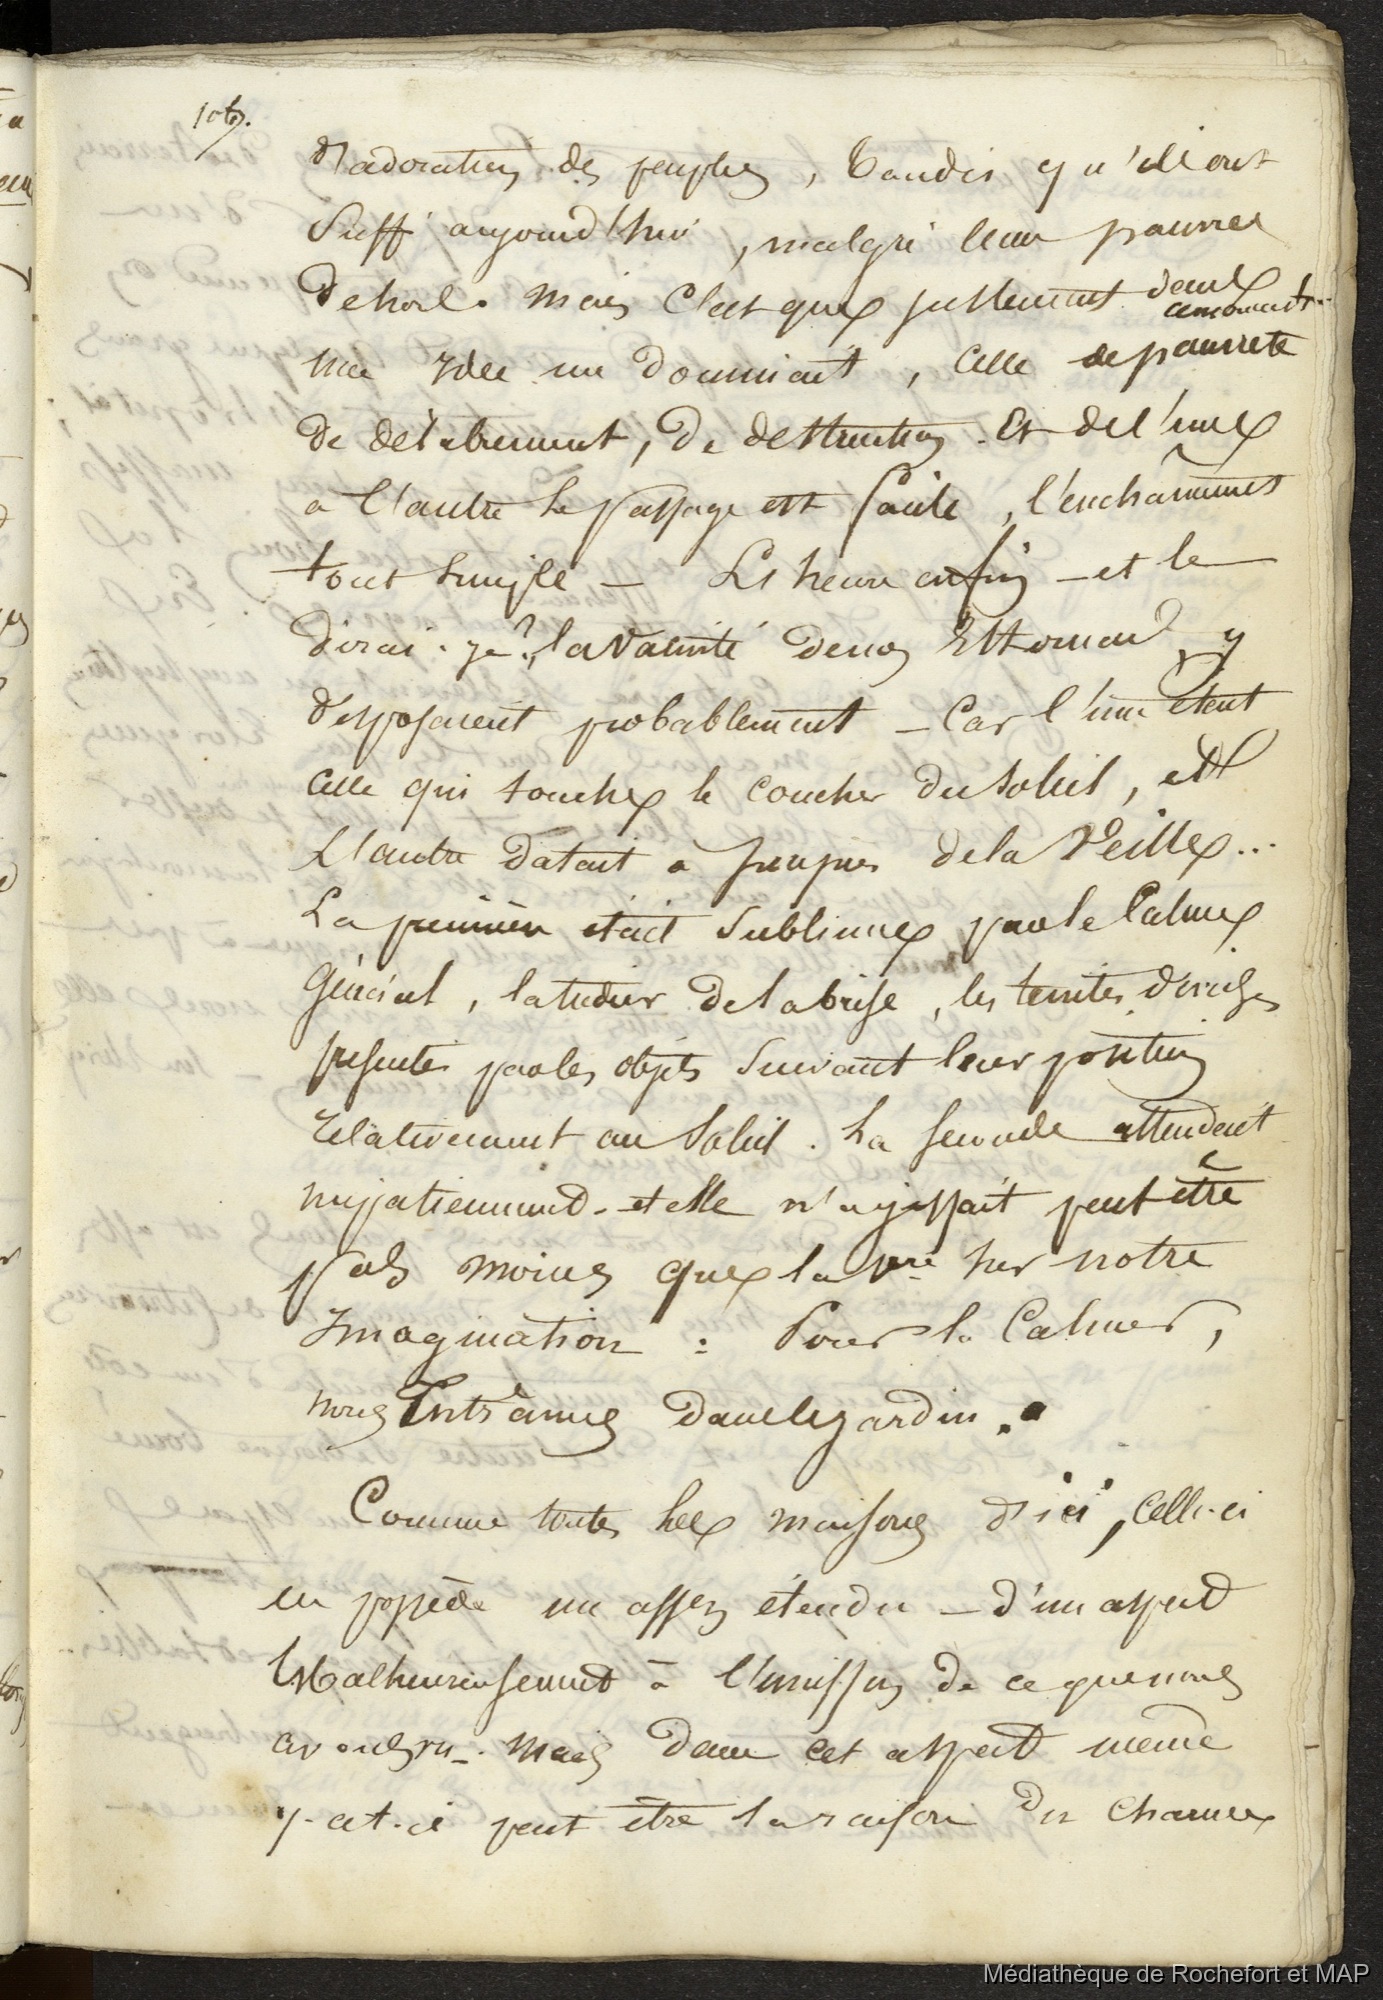 d'adoration des peuples, tandis qu'ils ont
suffi aujourd'hui, malgré leur pauvres
dehors. Mais c'est que justement dans
ce moment
une idée me dominait, celle de pauvreté
de délabrement, de destruction. Et de l'une
à l'autre le passage est facile, l'enchaînement
tout simple — L'heure enfin — et le
dirai-je?, la vacuité de nos estomacs y
disposaient probablement — Car l'une était
celle qui touche le coucher du soleil, et
l'autre datait à peu près de la veille...
La première était sublime par le calme
général, la tiédeur de la brise, les teintes diverses
présentées par les objets suivant leur position
relativement au soleil. La seconde attendait
impatiemment. et elle n'agissait peut être
pas moins que la 1ère sur notre
imagination : Pour la calmer,
nous entrâmes dans le jardin.
Comme toutes les maisons d'ici, celle-ci
en possède un assez étendu — d'un aspect
malheureusement à l'unisson de ce que nous
avons vu. Mais dans cet aspect même
y-at-il peut être la raison du charme
Médiathèque de Rochefort et MAP